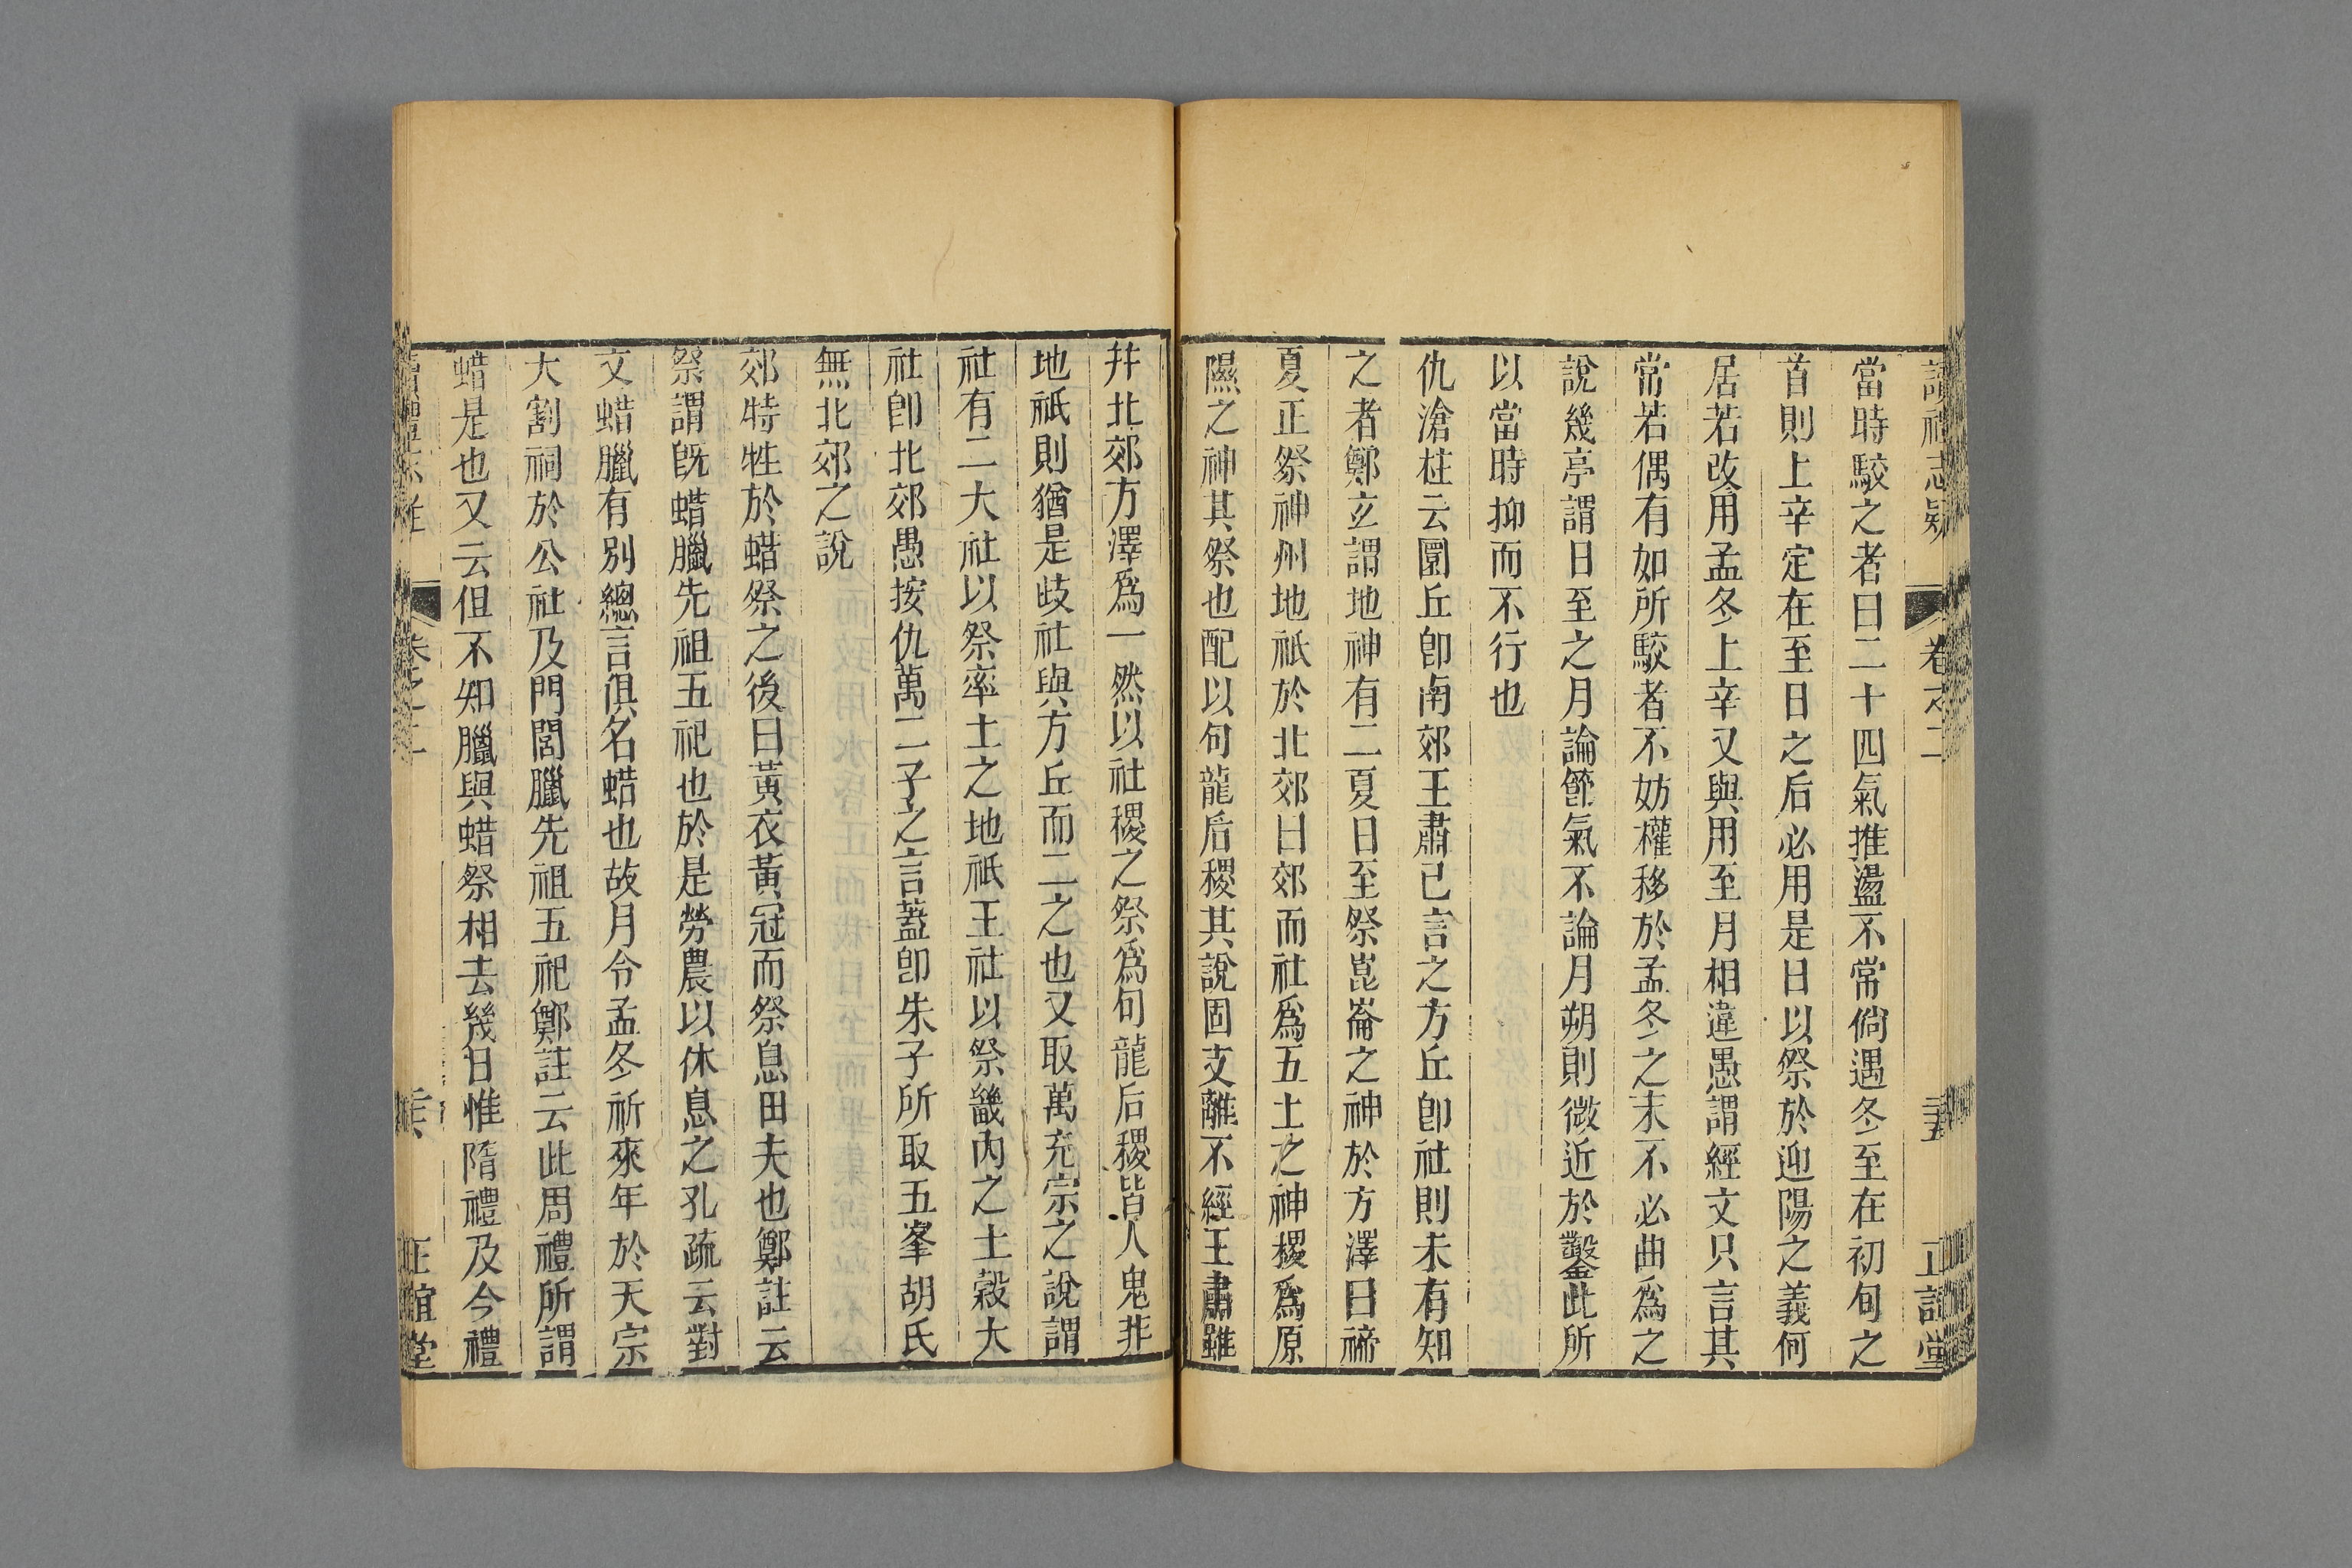 讀禮志疑 卷之二 三五 正誼堂
當時駮之者曰二十四氣推盪不常倘遇冬至在初旬之
首則上辛定在至日之后必用是日以祭於迎陽之義何
居若改用孟冬上辛又與用至月相違愚謂經文只言其
常若偶有如所駮者不妨權移於孟冬之末不必曲爲之
說幾亭謂日至之月論節氣不論月朔則微近於鑿此所
以當時抑而不行也
仇滄柱云圜丘卽南郊王肅已言之方丘卽社則未有知
之者鄭玄謂地神有二夏日至祭崑崙之神於方澤曰禘
夏正祭神州地祇於北郊曰郊而社爲五土之神稷爲原
隰之神其祭也配以句龍后稷其說固支離不經王肅雖
并北郊方澤爲一然以社稷之祭爲句龍后稷皆人鬼非
地祇則猶是歧社與方丘而二之也又取萬充宗之說謂
社有二大社以祭率土之地祇王社以祭畿內之土穀大
社卽北郊愚按仇萬二子之言蓋卽朱子所取五峯胡氏
無北郊之說
郊特牲於蜡祭之後曰黃衣黃冠而祭息田夫也鄭註云
祭謂旣蜡臘先祖五祀也於是勞農以休息之孔疏云對
文蜡臘有別總言俱名蜡也故月令孟冬祈來年於天宗
大割祠於公社及門閭臘先祖五祀鄭註云此周禮所謂
蜡是也又云但不知臘與蜡祭相去幾日惟隋禮及今禮
讀禮志疑 卷之二 正誼堂